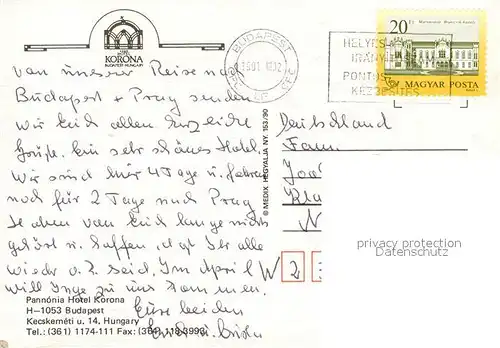 KORONA
BUDAPEST HUNGARY
BUDAPEST
20 Ft
HELYES
IRÁNYÍ
PONTOS
KÉZBESÍTÉS
MAGYAR POSTA
Von unserer Reise nach
Budapest + Prag senden
wir Euch allen herzliche
Grüße. Ein sehr schönes Hotel.
Wir sind hier 4 Tage u. fahren
noch für 2 Tage nach Prag
Haben von Euch lange nichts
gehört u. hoffen, daß Ihr alle
wieder o.k. seid. Im April
will Inge zu uns kommen.
Eure beiden
Deutschland
Fam.
© MEDIX HEGYALJA NY. 153/90
privacy protection
Datenschutz
W 2
Pannónia Hotel Korona
H-1053 Budapest
Kecskeméti u. 14, Hungary
Tel.: (361) 1174-111 Fax: (361) 118-3998